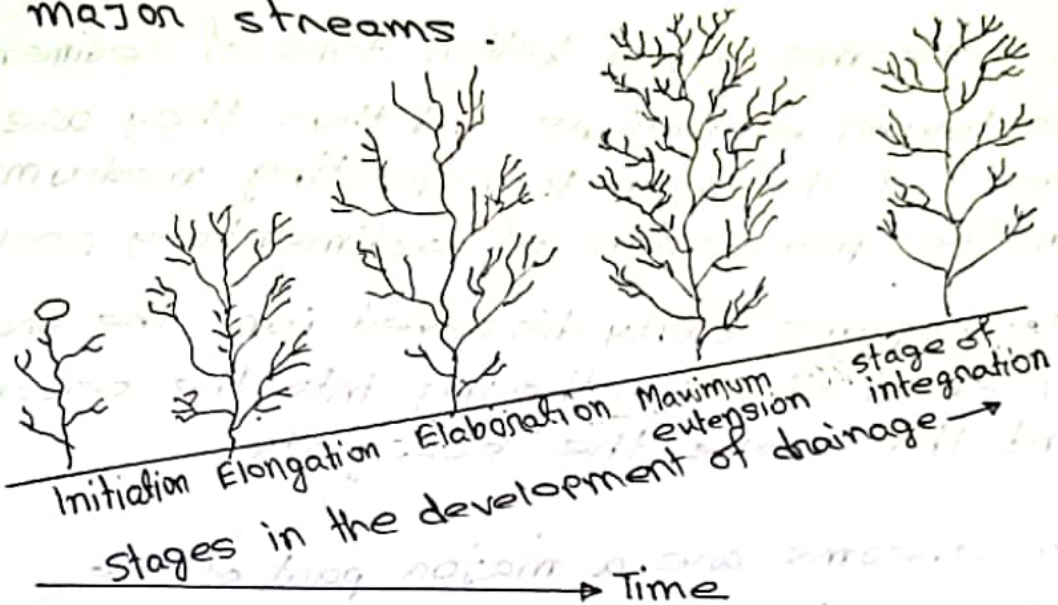 major streams.
Initiation Elongation Elaboration Maximum extension stage of integration
stages in the development of drainage →
Time